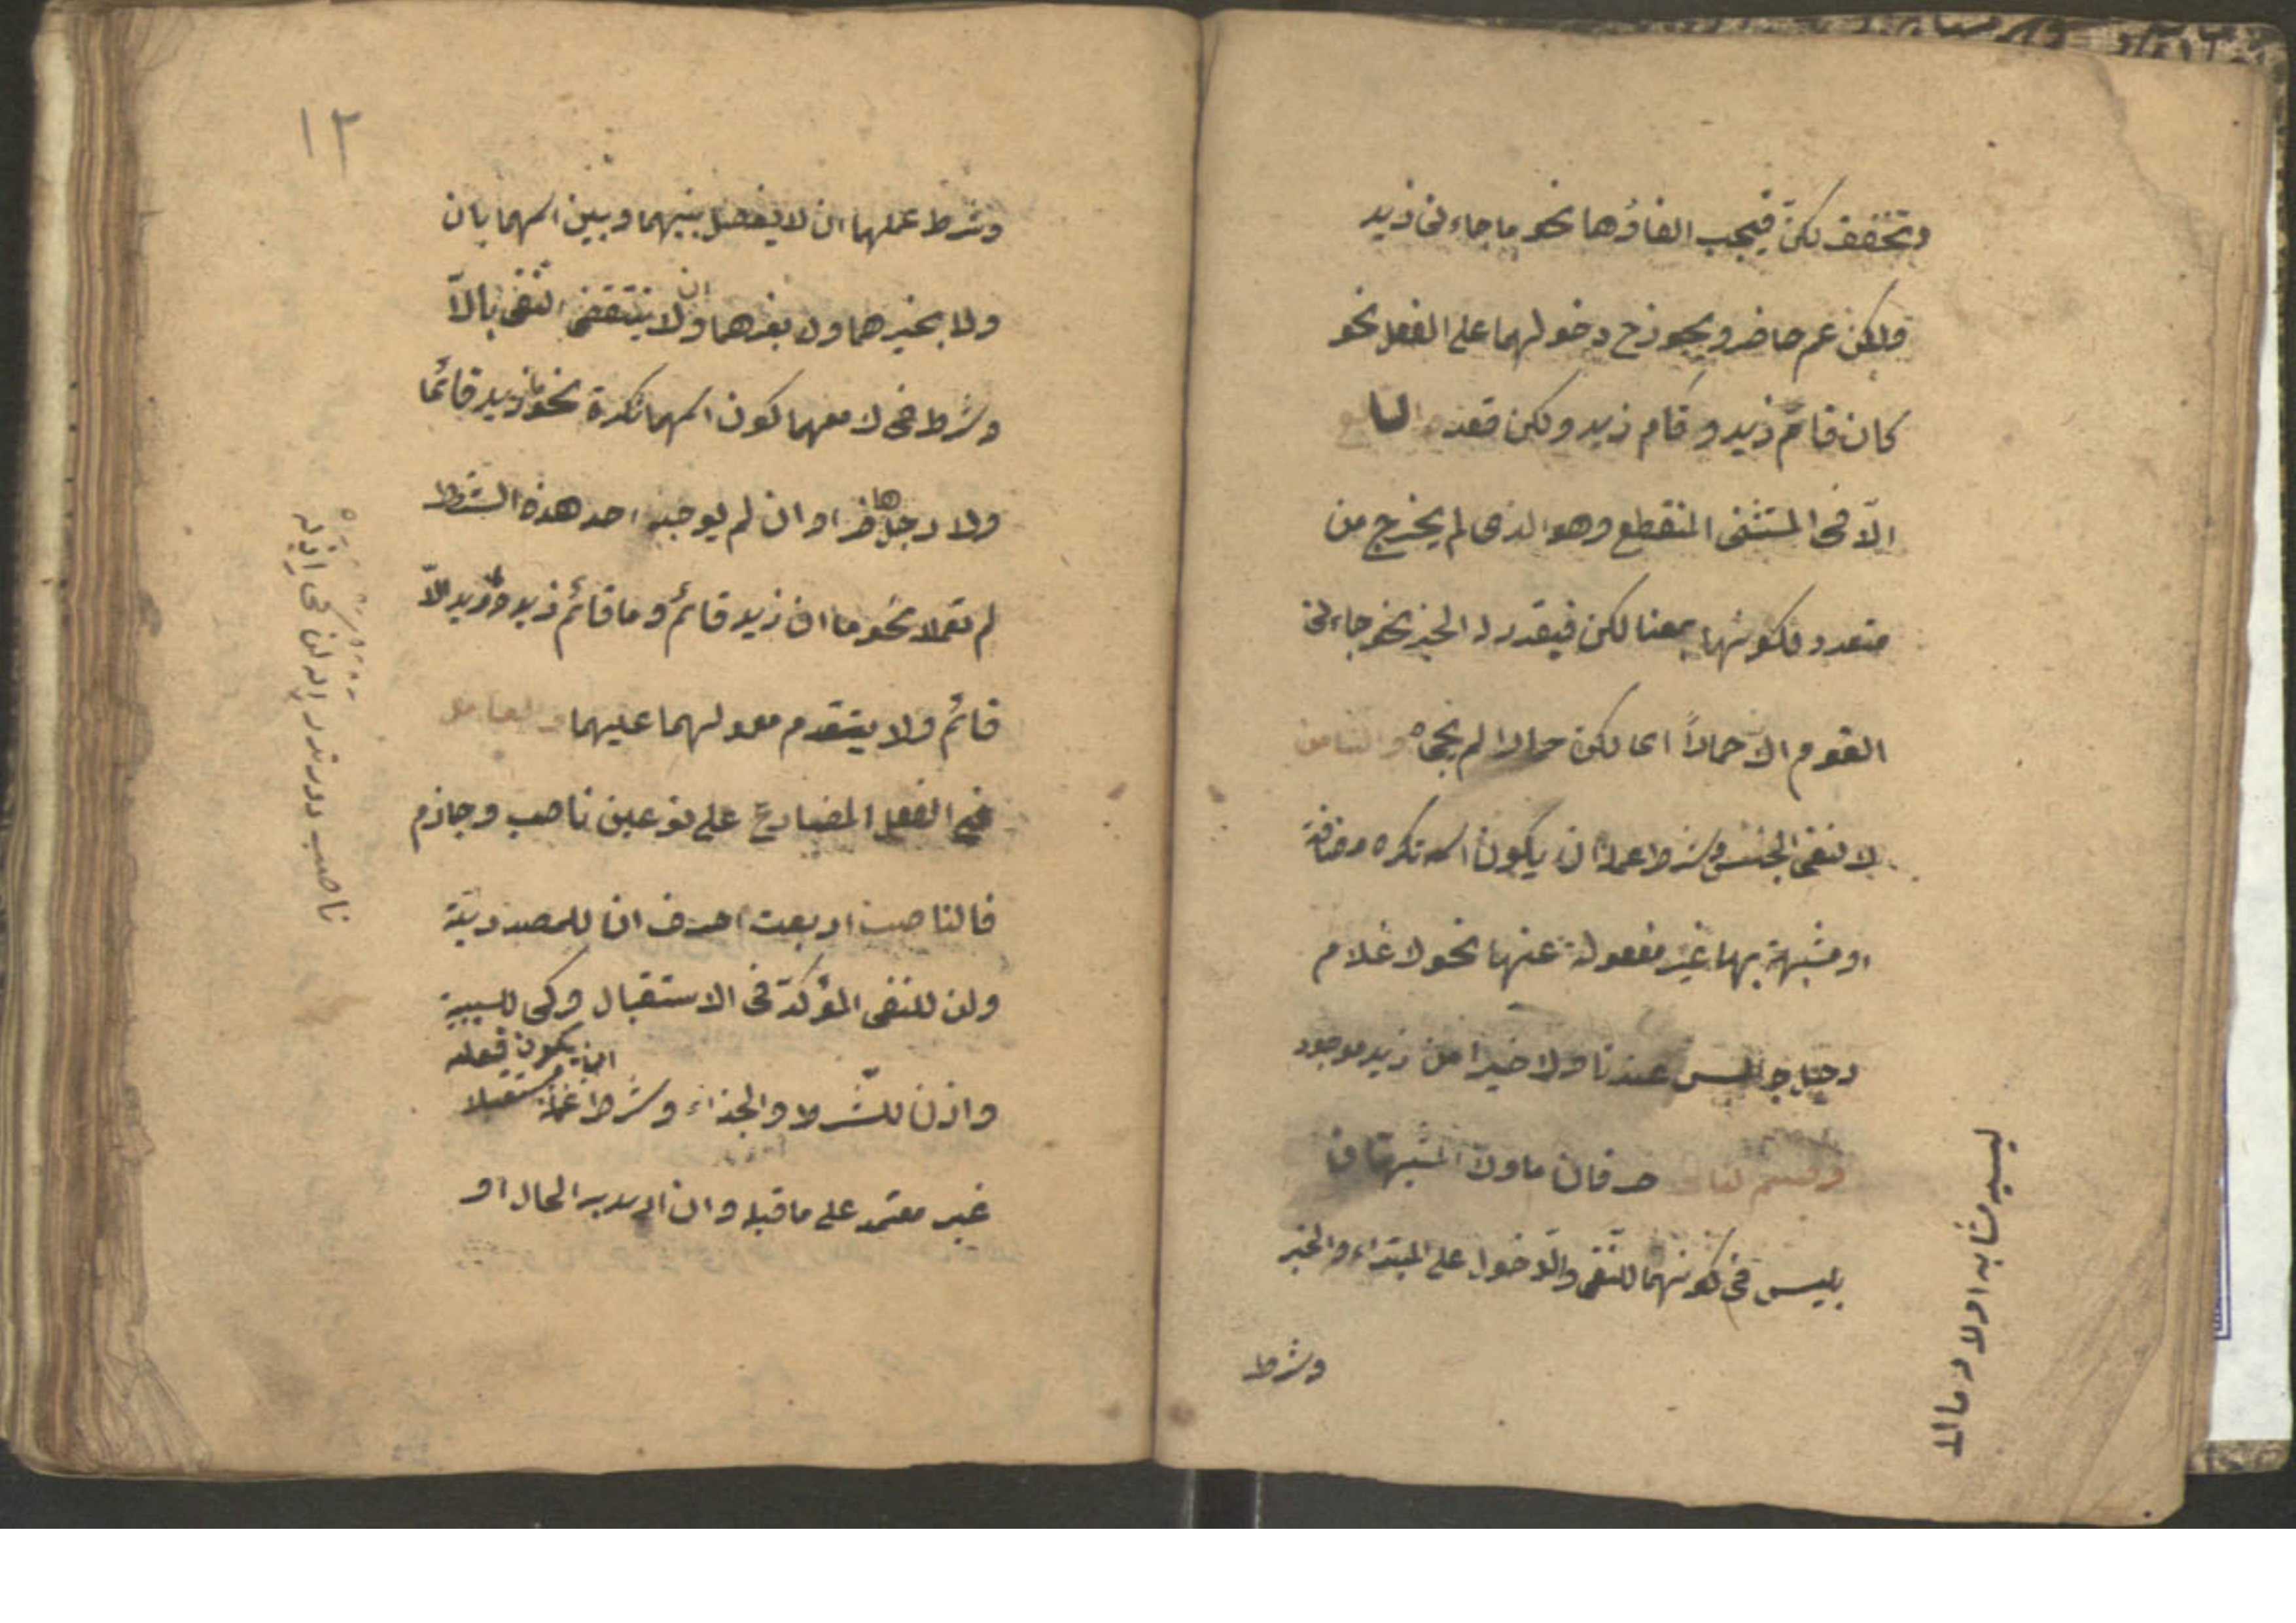 وتخفف لكنّ فيجب الغاؤها نحو ما جاءنى زيد
ولكن عم حاضر ويجوز ح دخولهما على الفعل نحو
كان قام زيد وقام زيد ولكن قعد
الّا فى المستثنى المنقطع وهو الذى لم يخرج من
متعدد لكونها بمعنا لكن فيقدر له الخبر نحو جاءنى
القوم الّا حمارًا اى لكن حمارا لم يجئ والثامن
لا لنفى الجنس وشرط عمله ان يكون اسمه نكره مضافة
او مشبهة بها غير مفعولة عنها نحو لا غلام
رجل جالس عندنا ولا خيرا من زيد موجود
حرفان ما ولا المشبهتان
بليس فى كونهما للنفى والدّخول على المبتداء والخبر
وشرط
ليسيه مشابه اولا
١٢
وشرط عملهما ان لا يفصل بينهما وبين اسمهما بان
ولا بخبرهما ولا بغيرهما وان لا ينتقض النفى بالّا
وشرط فى لا معهما كون اسمهما نكرة نحو ما زيد قائمًا
ولا رجل حاضرا وان لم يوجد احد هذه الشروط
لم تعملا نحو ما ان زيد قائم وما قائم زيد وما زيد الّا
قائم ولا يتقدم معمولهما عليهما والعامل
فى الفعل المضارع على نوعين ناصب وجازم
فالناصب اربعت احرف ان للمصدريّة
ولن للنفى المؤكدّ فى الاستقبال وكى للسببيّة
ان يكون فعله
واذن للشّرط والجزاء وشرط عمله مستقبلا
غير معتمد على ما قبله وان اريد به الحال او